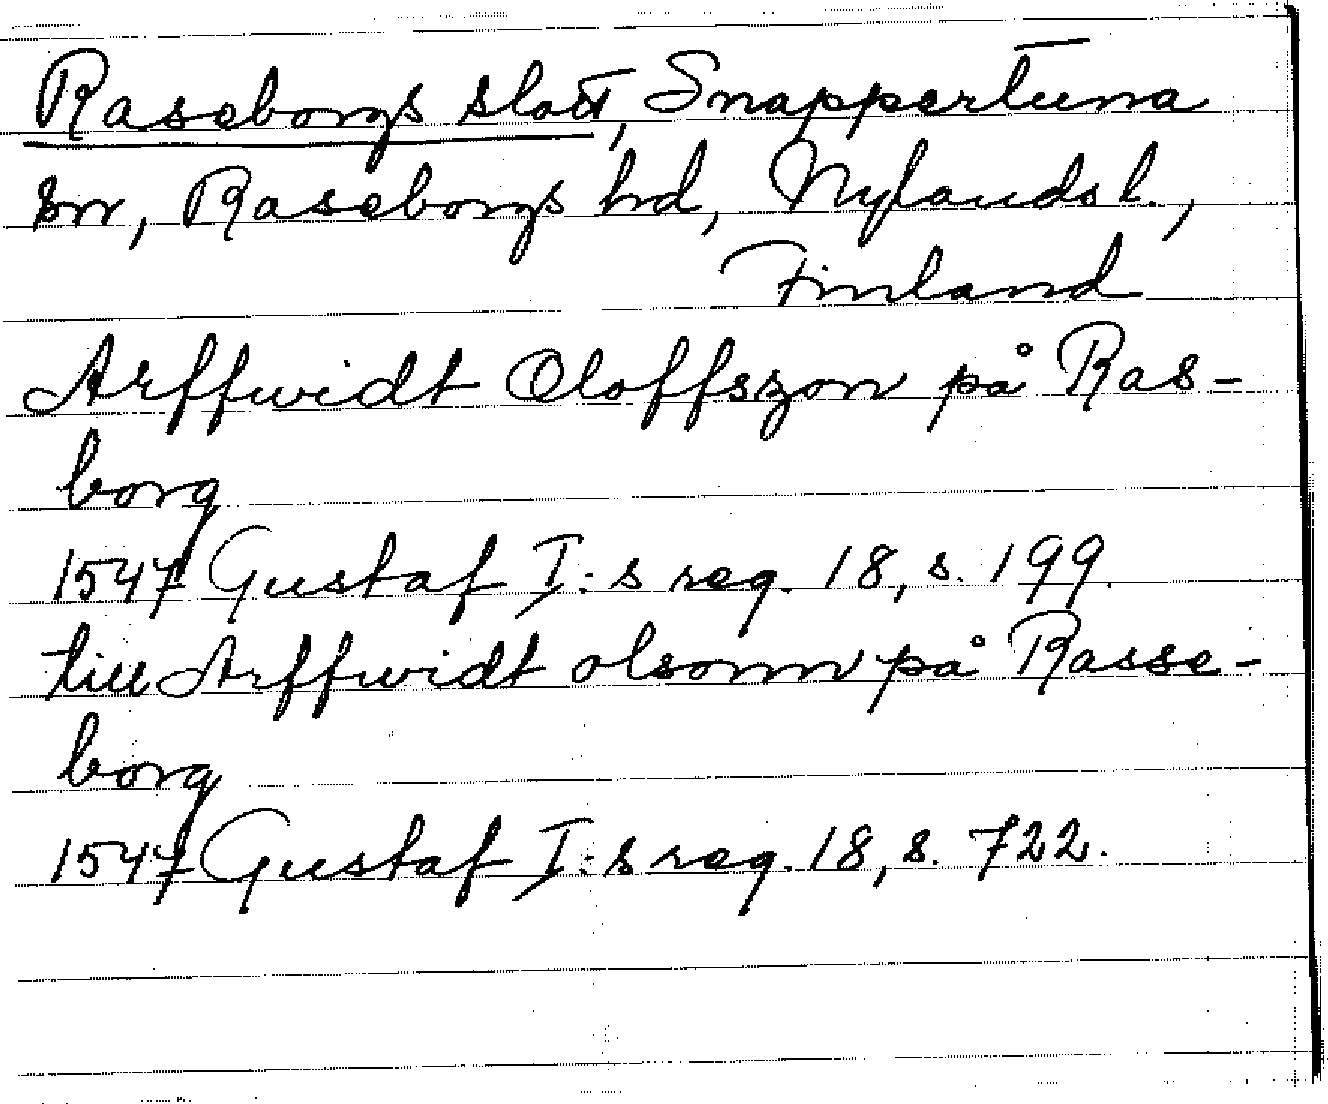 Raseborgs slott, Snappertuna
sn, Raseborgs hd, Nylands l.,
Finland
Arffwidt Oloffszon på Ras-
borg
1547 Gustaf I:s reg. 18, s. 199.
till Arffwidt olsonn på Rasse-
borg
1547 Gustaf I:s reg. 18, s. 722.